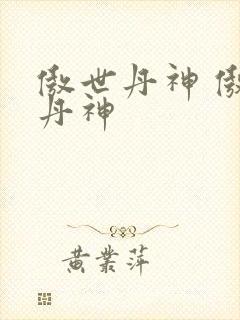 傲世丹神 傲
丹神
黄業萍